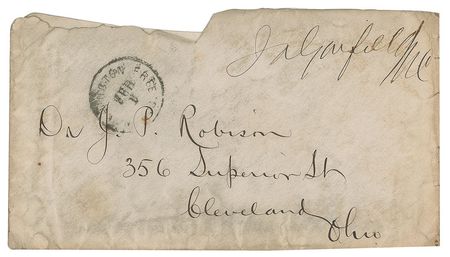 JAGarfield MC
NGTON FREE
FEB
Dr J. P. Robison
356 Superior St
Cleveland
Ohio